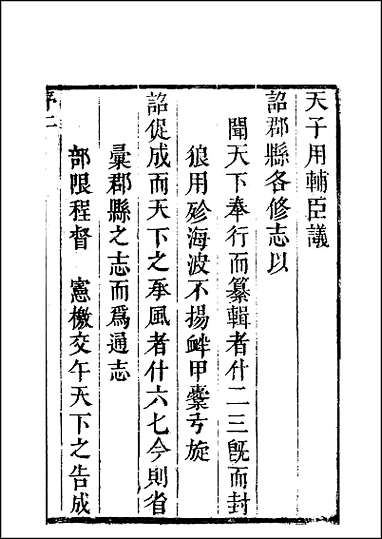 天子用輔臣議
詔郡縣各修志以
聞天下奉行而纂輯者什二三旣而封
狼用殄海波不揚衅甲櫜弓旋
詔促成而天下之承風者什六七今則省
彙郡縣之志而爲通志
部限程督　憲檄交午天下之告成
序二